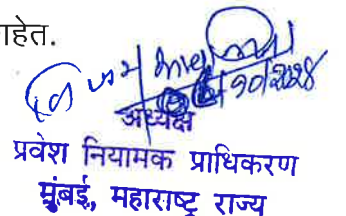 हेत.
/१०/२०२४
अध्यक्ष
प्रवेश नियामक प्राधिकरण
मुंबई, महाराष्ट्र राज्य